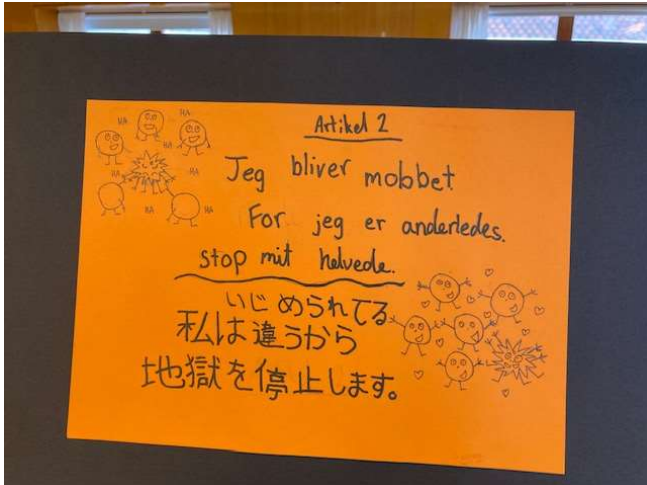 Artikel 2
HA
HA
HA
HA
HA
HA
HA
Jeg bliver mobbet
For jeg er anderledes.
stop mit helvede.
いじめられてる
私は違うから
地獄を停止します。